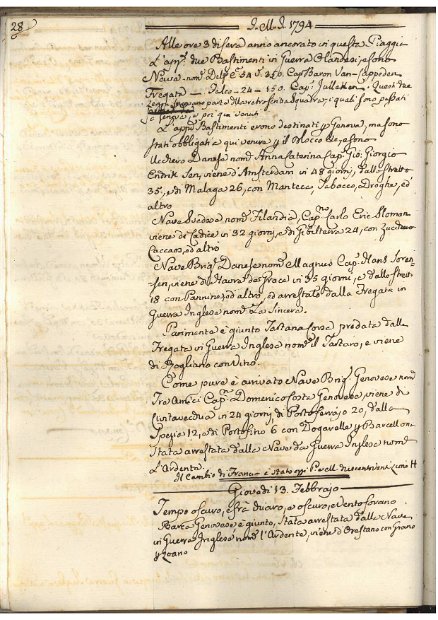 28
I.M.I. 1794
Alle ore 3 di sera anno ancorato in questa Piaggia
L'app. due Bastimenti in Guerra Olandesi, e sono
Nave nom. Delf C. 54 v. 350 Cap. Baron Van-
Fregata — — 24 — 150. Cap.
parte della retrosenta squadra, i quali sono passati
a
L'app. Bastimenti erano destinati p Genova, ma sono
stati obbligati a qui venire p il Blocco etc., e sono
Uchero Danese nom. Anna Caterina Cap. Gio: Giorgio
viene d'Amsterdam in 48 giorni, dallo Stretto
35, e di Malaga 26, con Manteca, Tabacco, Droghe, ed
altro
Nave Svedese nom. Filandia, Cap. Carlo Eric Sloman
viene di Cadice in 32 giorni, e di Gibilterra 24, con Zucchero
Caccaos, ed altro
Nave Brig. Danese nom. Magnus Cap. Hans Soren-
sen, viene da Havre de Grace in 35 giorni, e dallo Stretto
18 con Pannine, ed altro, ed arrestato dalla Fregata in
Guerra Inglese nom. La Sincera.
Parimente è giunto Tartana Corsa predata dalla
Fregata in Guerra Inglese nom. il Tartaro, e viene
di con Vino.
Come pure è arrivato Nave Brig. Genovese nom.
Tre Amici Cap. Domenico Costa Genovese, viene di
Civitavecchia in 24 giorni, di Portoferrajo 20, dalla
Spezia 12, e di Portofino 6 con Dogarelle p Barcellona
Stata arrestata dalla Nave da Guerra Inglese nom.
L'Ardente.
Il Cambio di Francia è stato
Giovedì 13. Febbrajo
Tempo oscuro, e oscuro, e Vento forano.
Barca Genovese è giunto, Stata arrestata dalla Nave
in Guerra Inglese nom. l'Ardente, viene d'Oristano con Grano
p Loano